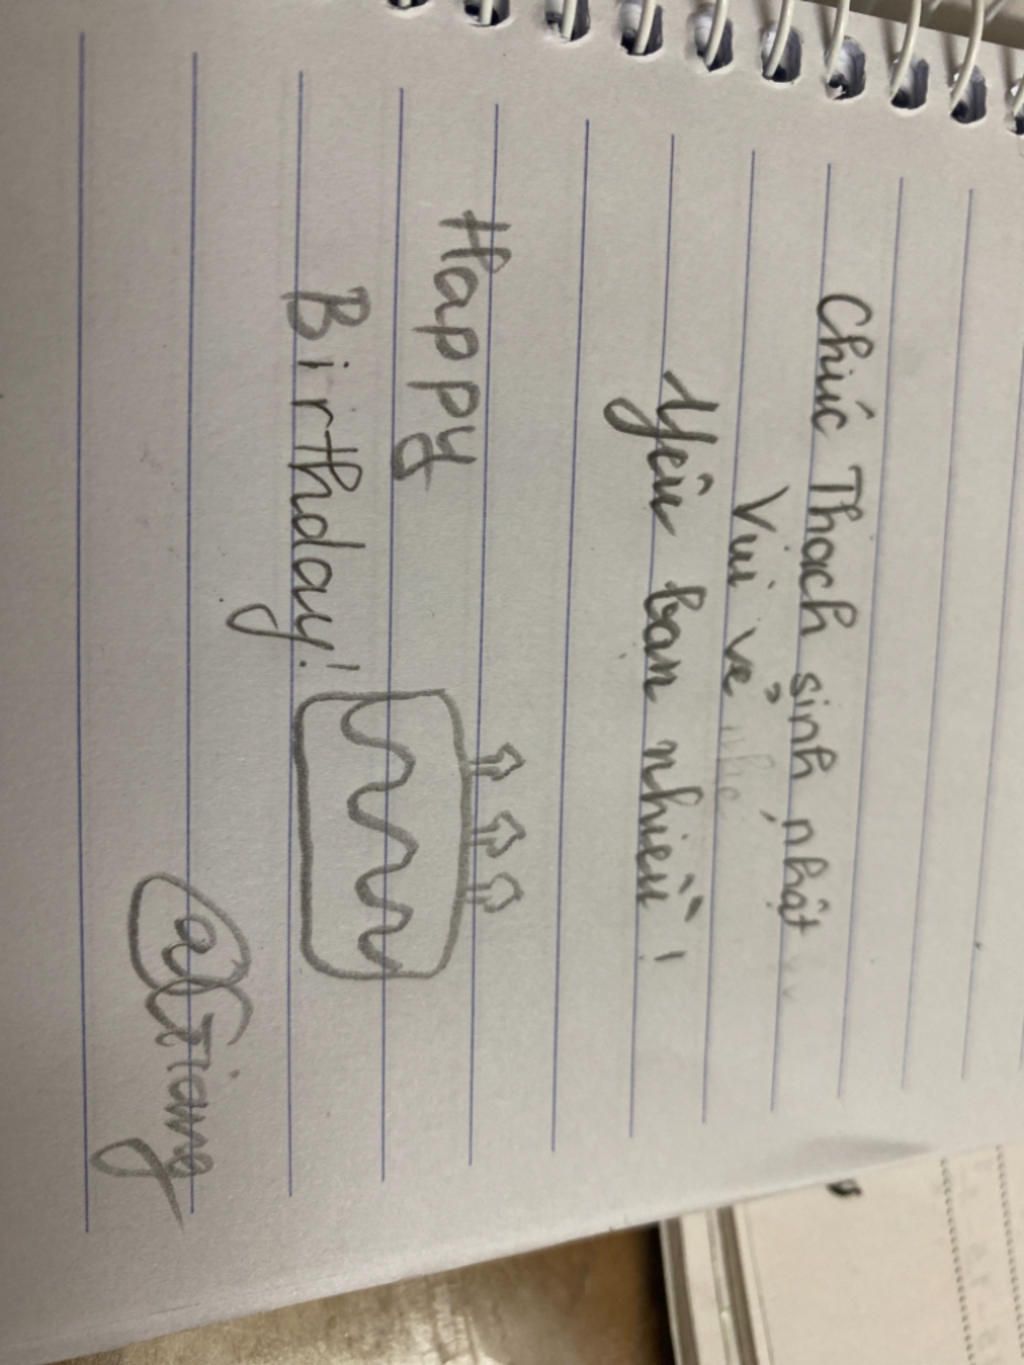 Chúc Thach sinh nhật
Vui vẻ
Yêu bạn nhiều!
Happy
Birthday!
@Giang